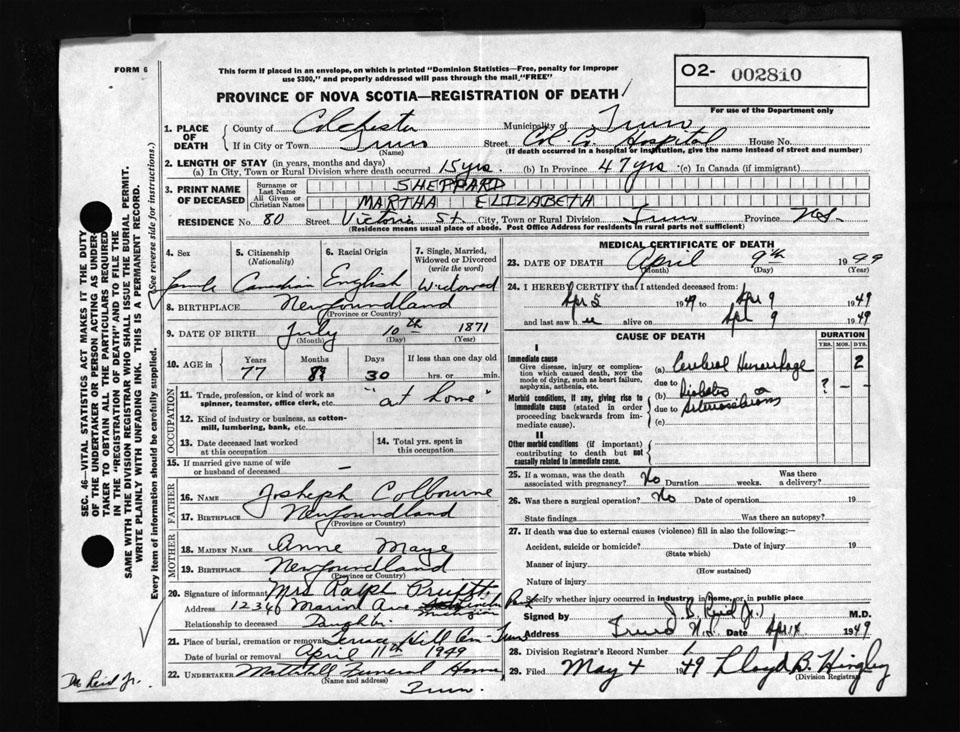 FORM 6
This form if placed in an envelope, on which is printed "Dominion Statistics—Free, penalty for improper
use $300," and properly addressed will pass through the mail "FREE"
O2- 002810
For use of the Department only
PROVINCE OF NOVA SCOTIA—REGISTRATION OF DEATH
1. PLACE OF DEATH
County of Colchester Municipality of Truro
If in City or Town Truro (Name) Street Col. Co. Hospital House No.
(If death occurred in a hospital or institution, give the name instead of street and number)
2. LENGTH OF STAY (in years, months and days)
(a) In City, Town or Rural Division where death occurred 15 yrs. (b) In Province 47 yrs (c) In Canada (if immigrant)
3. PRINT NAME OF DECEASED
Surname or Last Name SHEPPARD
All Given or Christian Names MARTHA ELIZABETH
RESIDENCE No. 80 Street Victoria St. City, Town or Rural Division Truro Province N.S.
(Residence means usual place of abode. Post Office Address for residents in rural parts not sufficient)
4. Sex Female
5. Citizenship (Nationality) Canadian
6. Racial Origin English
7. Single, Married, Widowed or Divorced (write the word) Widowed
8. BIRTHPLACE Newfoundland
(Province or Country)
9. DATE OF BIRTH July 10th 1871
(Month) (Day) (Year)
10. AGE in Years Months Days If less than one day old
77 30 hrs. or min.
OCCUPATION
11. Trade, profession, or kind of work as spinner, teamster, office clerk, etc. "at home"
12. Kind of industry or business, as cotton-mill, lumbering, bank, etc.
13. Date deceased last worked at this occupation
14. Total yrs. spent in this occupation
15. If married give name of wife or husband of deceased —
FATHER
16. NAME Josheph Colbourne
17. BIRTHPLACE Newfoundland
(Province or Country)
MOTHER
18. MAIDEN NAME Anne Maye
19. BIRTHPLACE Newfoundland
(Province or Country)
20. Signature of informant Mrs Ralph
Address Ave
Relationship to deceased Daughter
21. Place of burial, cremation or removal Terrace Hill Cem- Truro
Date of burial or removal April 11th 1949
22. UNDERTAKER Funeral Home
(Name and address) Truro.
MEDICAL CERTIFICATE OF DEATH
23. DATE OF DEATH April 9th 1949
(Month) (Day) (Year)
24. I HEREBY CERTIFY that I attended deceased from:
Apr 5 1949 to Apr 9 1949
and last saw h er alive on Apl 9 1949
CAUSE OF DEATH
DURATION
YRS. MOS. DYS.
I
Immediate cause
Give disease, injury or complication which caused death, NOT the mode of dying, such as heart failure, asphyxia, asthenia, etc.
(a) Cerebral Hemorrhage 2
due to
(b) Diabetes ? — —
Morbid conditions, if any, giving rise to immediate cause (stated in order proceeding backwards from immediate cause).
due to
(c)
II
Other morbid conditions (if important) contributing to death but not causally related to immediate cause.
25. If a woman, was the death associated with pregnancy? No Duration weeks. Was there a delivery?
26. Was there a surgical operation? No Date of operation 19
State findings Was there an autopsy?
27. If death was due to external causes (violence) fill in also the following:
Accident, suicide or homicide? Date of injury 19
(State which)
Manner of injury
(How sustained)
Nature of injury
Specify whether injury occurred in industry, in home, or in public place
Signed by J B Reid Jr. M.D.
Address Truro N.S. Date Apr 1949
28. Division Registrar's Record Number
29. Filed May 4 1949 Lloyd B. Hingley
(Division Registrar)
SEC. 46—VITAL STATISTICS ACT MAKES IT THE DUTY
OF THE UNDERTAKER OR PERSON ACTING AS UNDER-
TAKER TO OBTAIN ALL THE PARTICULARS REQUIRED
IN THE "REGISTRATION OF DEATH" AND TO FILE THE
SAME WITH THE DIVISION REGISTRAR WHO SHALL ISSUE THE BURIAL PERMIT.
WRITE PLAINLY WITH UNFADING INK. THIS IS A PERMANENT RECORD.
Every item of information should be carefully supplied. (See reverse side for instructions.)
Dr Reid Jr.